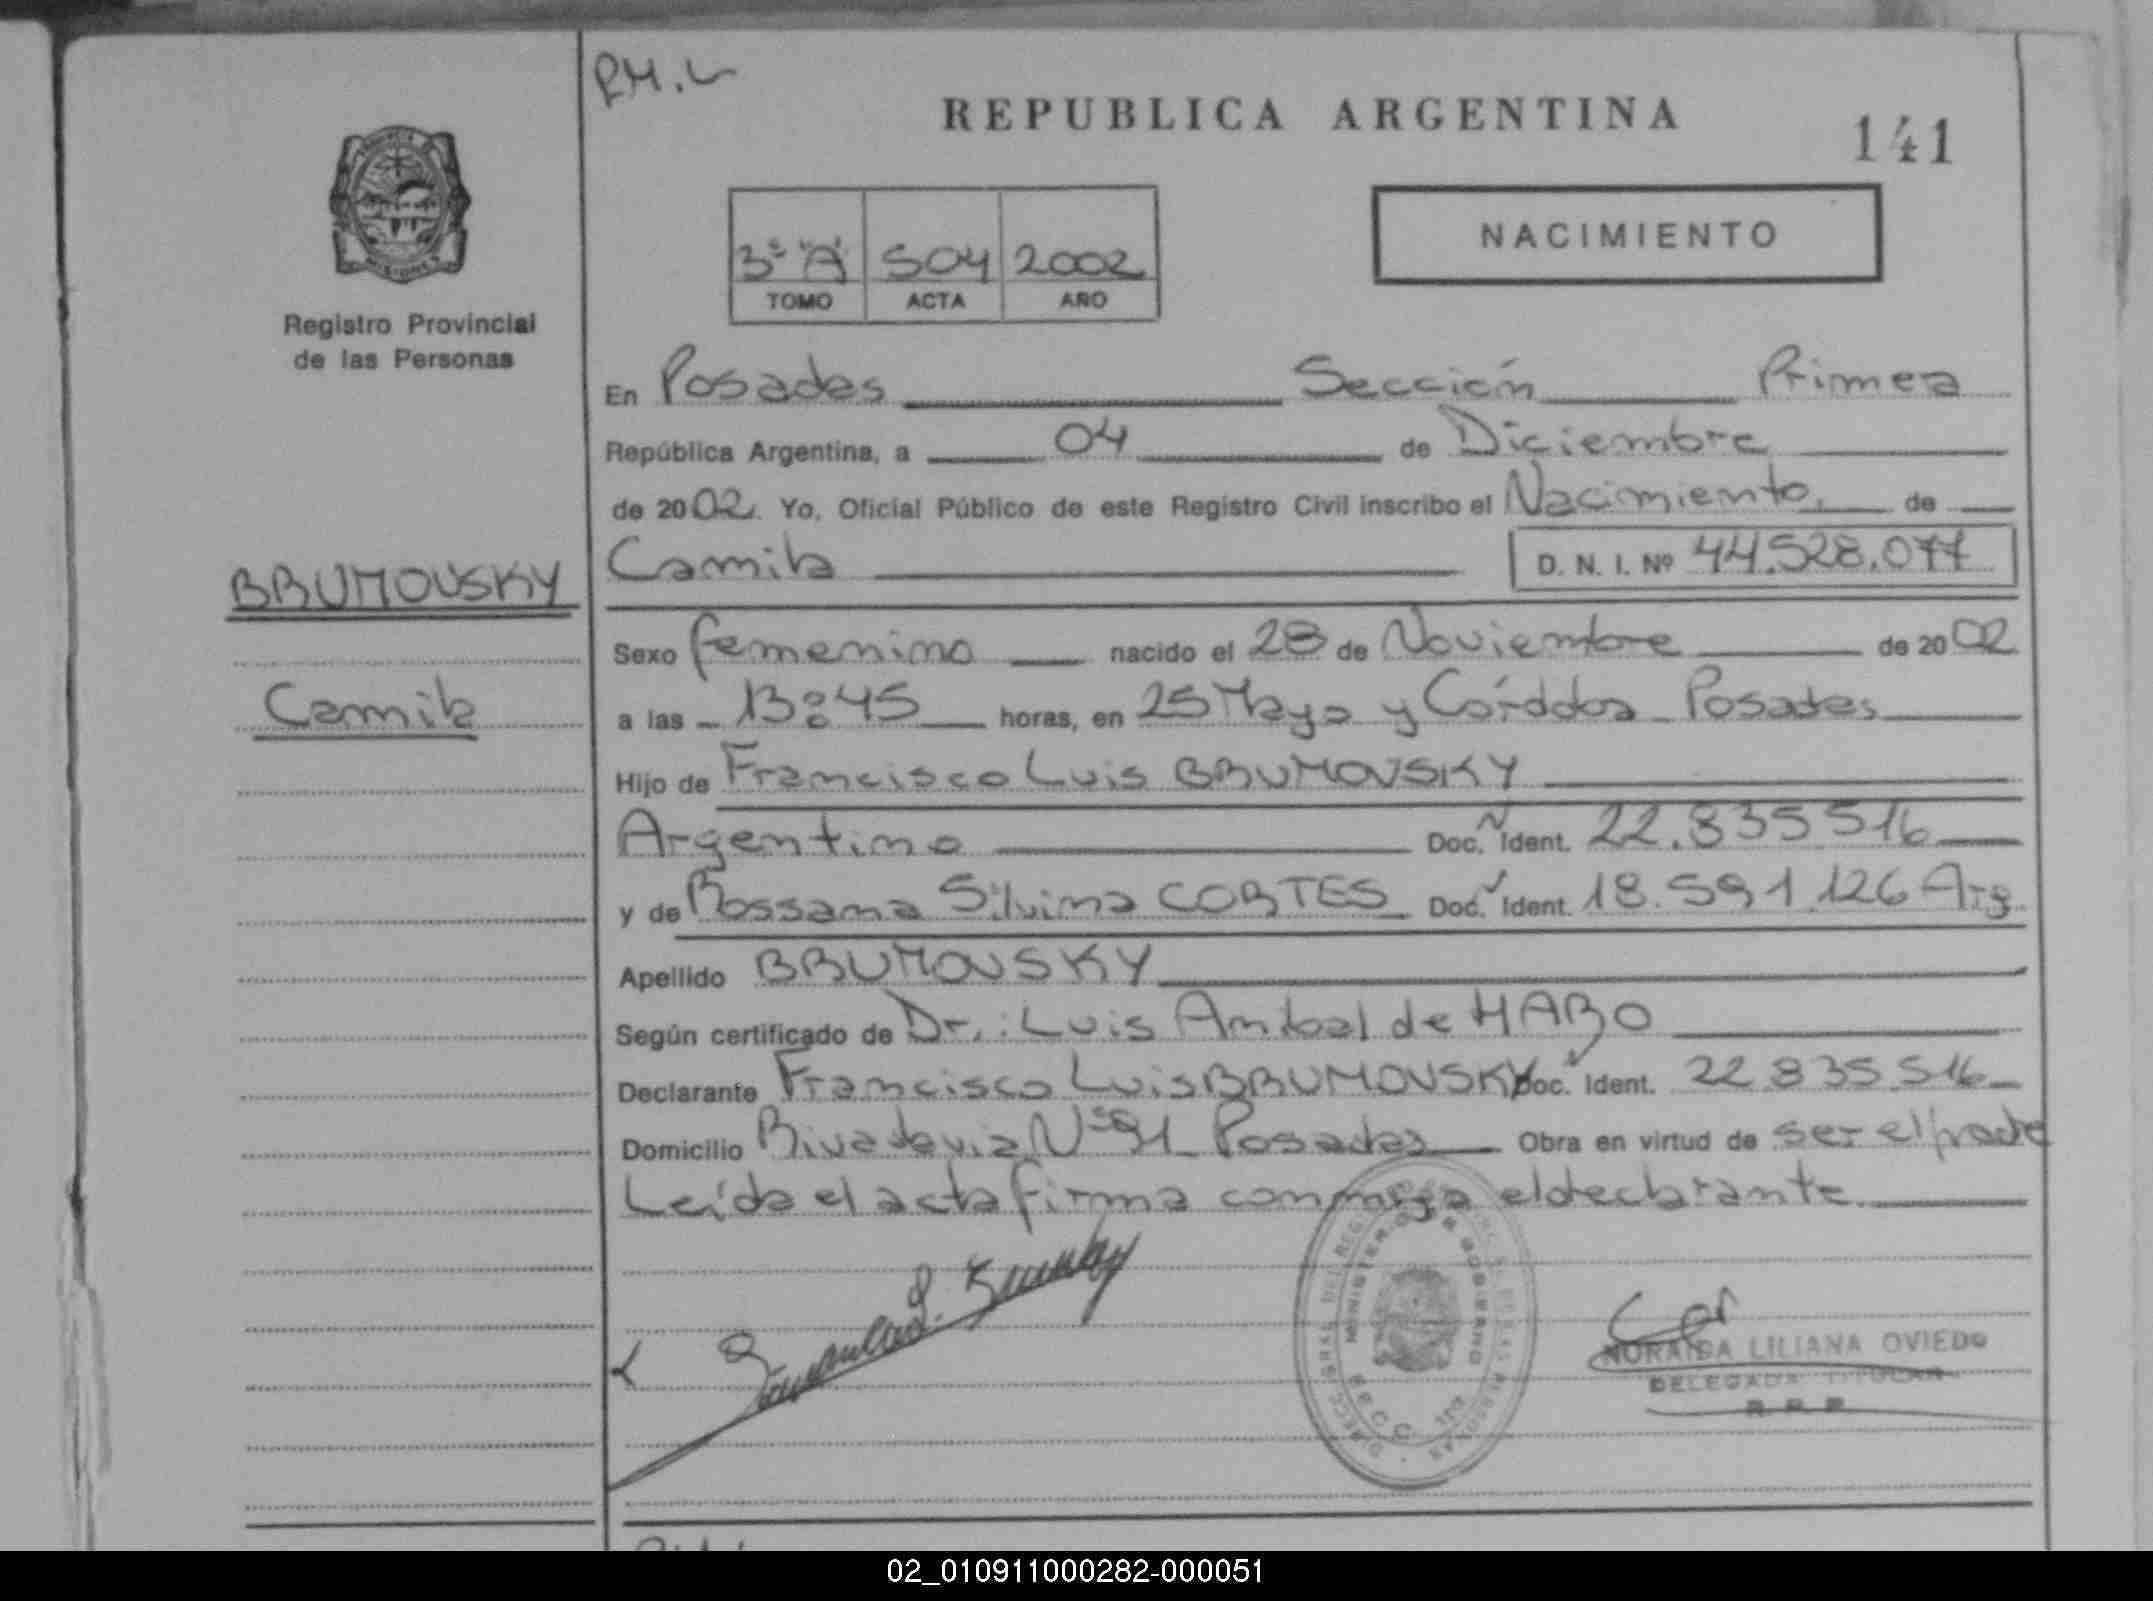 RM.L
REPUBLICA ARGENTINA
141
3º "A" 504 2002
TOMO ACTA AÑO
NACIMIENTO
Registro Provincial
de las Personas
En Posadas Sección Primera
República Argentina, a 04 de Diciembre
de 2002. Yo, Oficial Público de este Registro Civil inscribo el Nacimiento, de
BRUMOVSKY
Camila D. N. I. Nº 44.528.077
Sexo femenino nacido el 28 de Noviembre de 2002
Camila
a las 13:45 horas, en 25 Mayo y Córdoba Posadas
Hijo de Francisco Luis BRUMOVSKY
Argentino Doc. Ident. 22.835.516
y de Rossana Silvina CORTES Doc. Ident. 18.591.126 Arg.
Apellido BRUMOVSKY
Según certificado de Dr.: Luis Anibal de HARO
Declarante Francisco Luis BRUMOVSKY Doc. Ident. 22 835 516
Domicilio Rivadavia Nº 91 Posadas Obra en virtud de ser el padre
Leída el acta firma conmigo el declarante
MINISTERIO DE GOBIERNO
NORAIDA LILIANA OVIEDO
DELEGADA TITULAR
R.P.P.
02_010911000282-000051